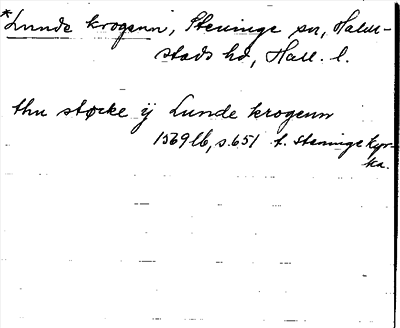 *Lunde krogenn, Steninge sn, Halm-
stads hd, Hall. l.
thu støcke ij Lunde krogenn
1569 lb, s.651 t. Steninge kyr-
ka.